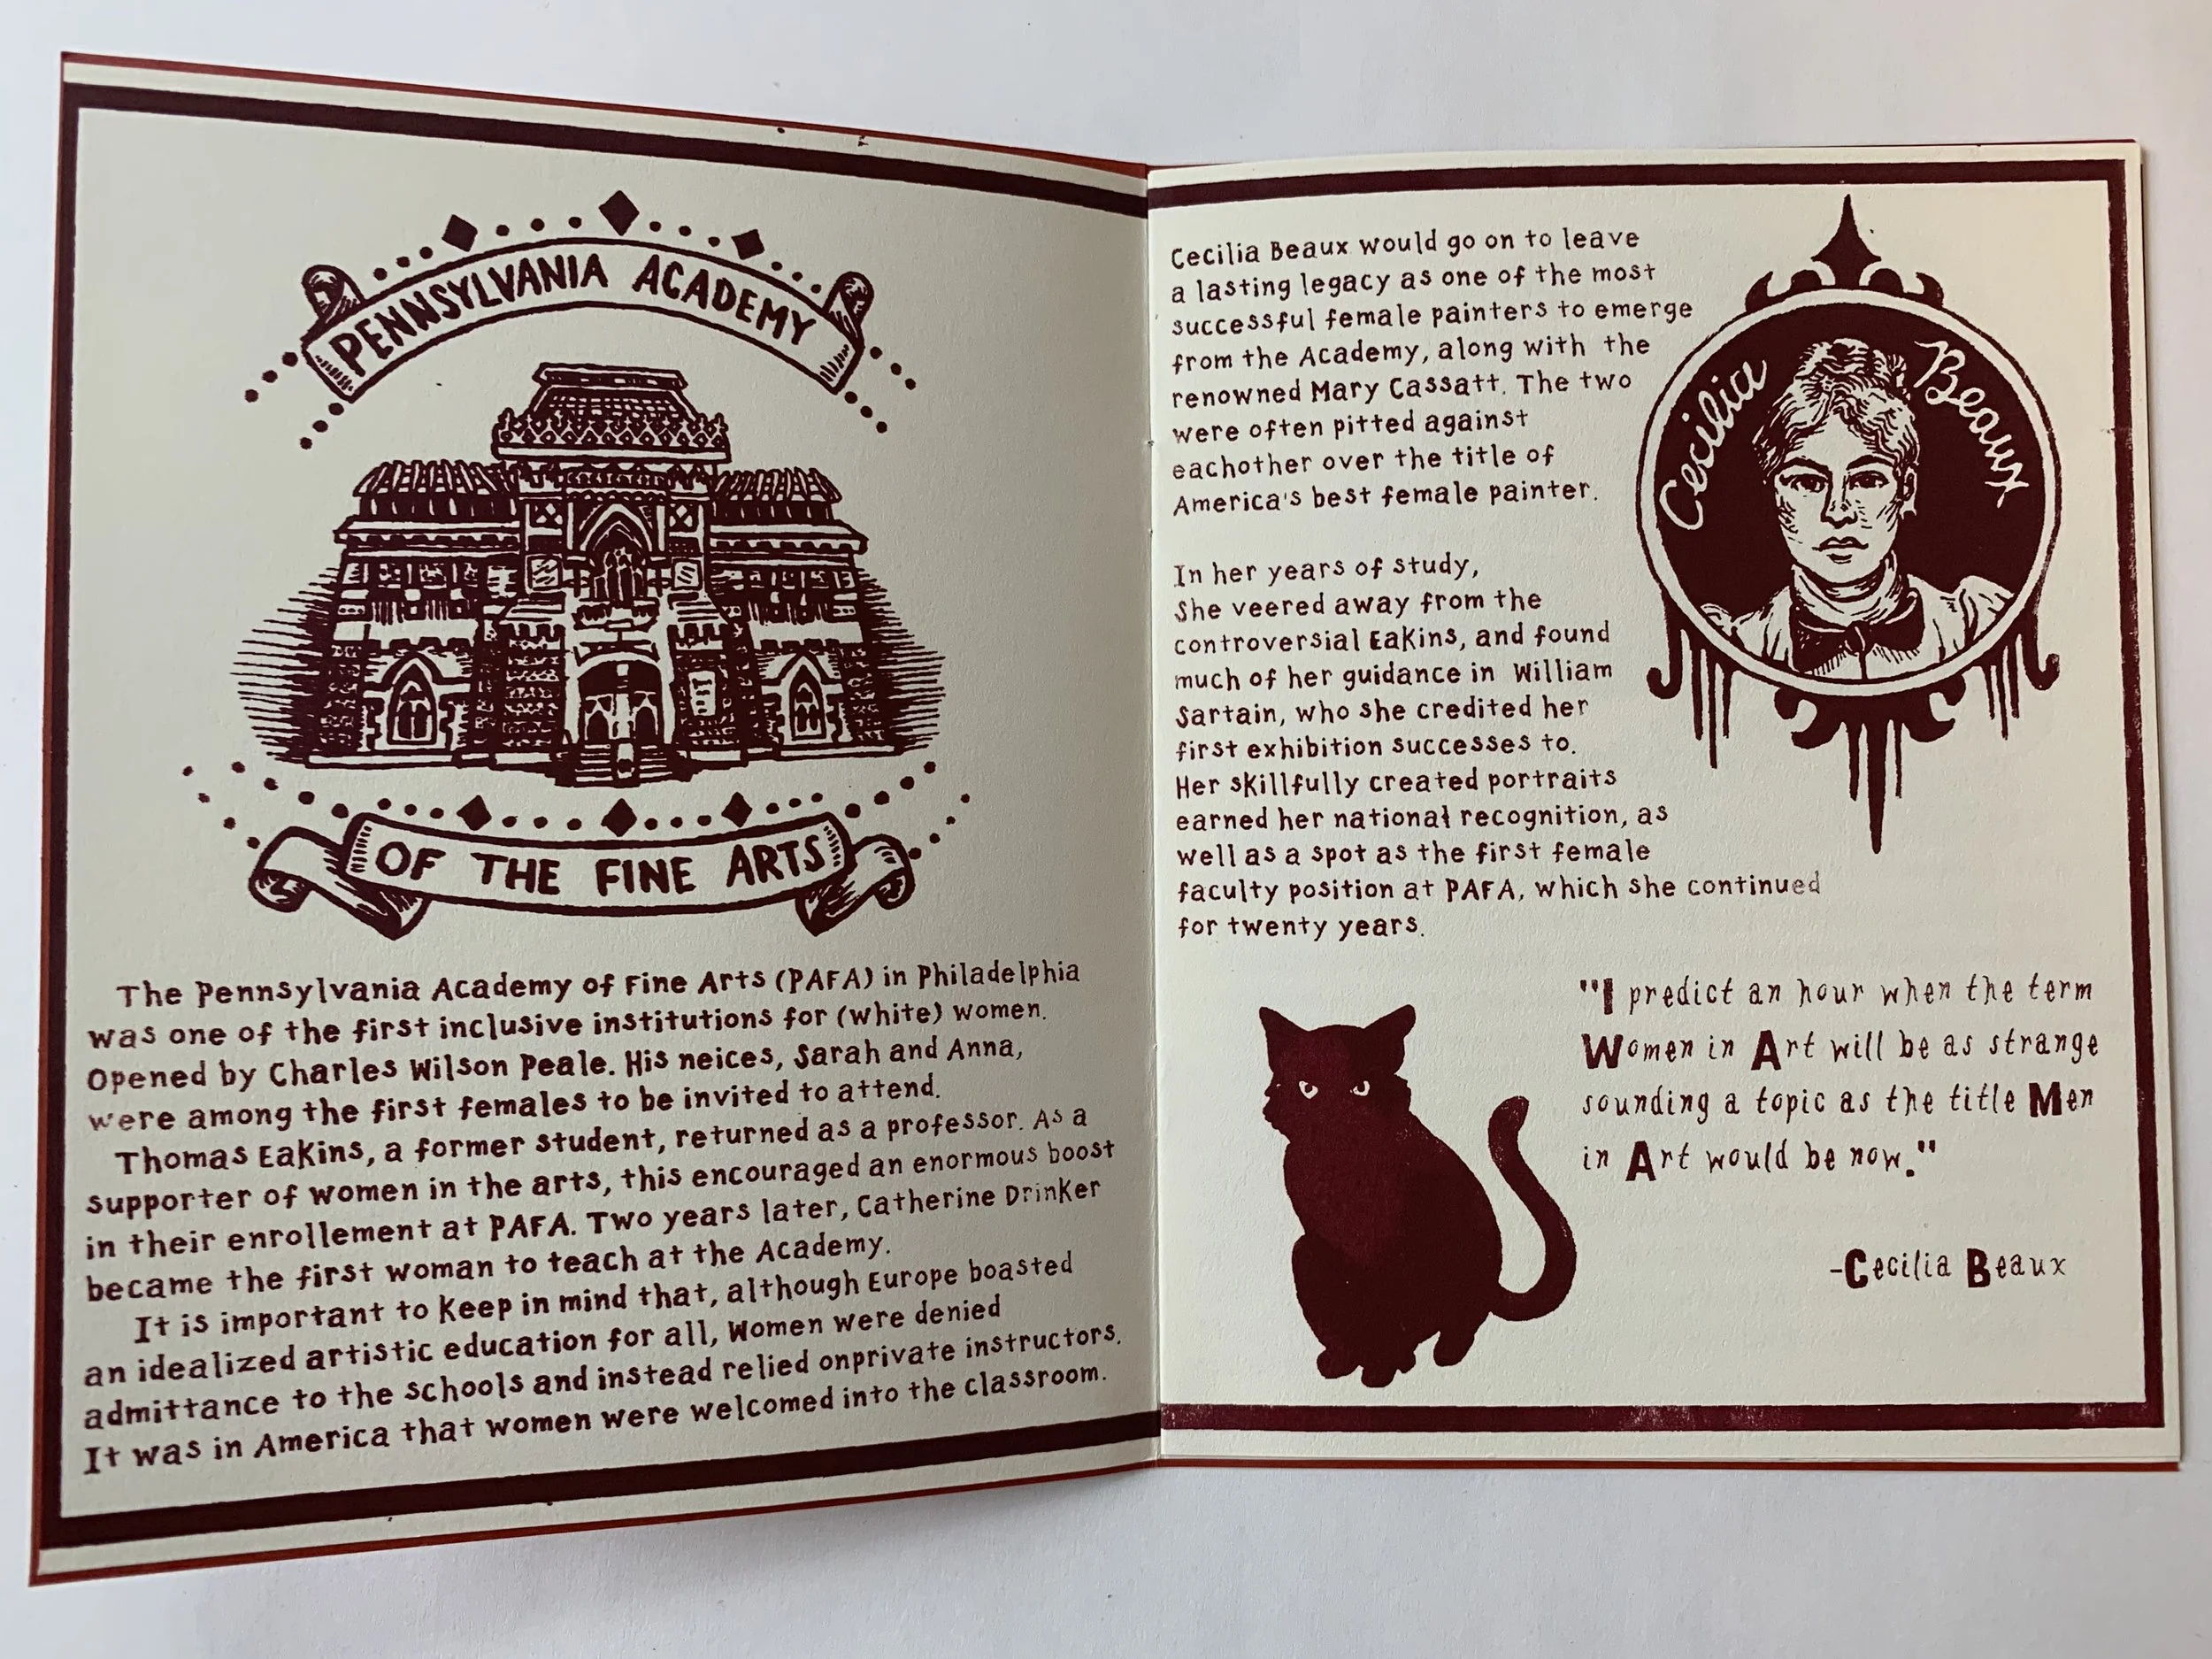 PENNSYLVANIA ACADEMY
OF THE FINE ARTS
The Pennsylvania Academy of Fine Arts (PAFA) in Philadelphia
was one of the first inclusive institutions for (white) women.
Opened by Charles Wilson Peale. His neices, Sarah and Anna,
were among the first females to be invited to attend.
Thomas Eakins, a former student, returned as a professor. As a
supporter of women in the arts, this encouraged an enormous boost
in their enrollement at PAFA. Two years later, Catherine Drinker
became the first woman to teach at the Academy.
It is important to keep in mind that, although Europe boasted
an idealized artistic education for all, Women were denied
admittance to the schools and instead relied onprivate instructors.
It was in America that women were welcomed into the classroom.
Cecilia Beaux would go on to leave
a lasting legacy as one of the most
successful female painters to emerge
from the Academy, along with the
renowned Mary Cassatt. The two
were often pitted against
eachother over the title of
America's best female painter.
In her years of study,
She veered away from the
controversial Eakins, and found
much of her guidance in William
Sartain, who she credited her
first exhibition successes to.
Her skillfully created portraits
earned her national recognition, as
well as a spot as the first female
faculty position at PAFA, which she continued
for twenty years.
Cecilia Beaux
"I predict an hour when the term
Women in Art will be as strange
sounding a topic as the title Men
in Art would be now."
-Cecilia Beaux